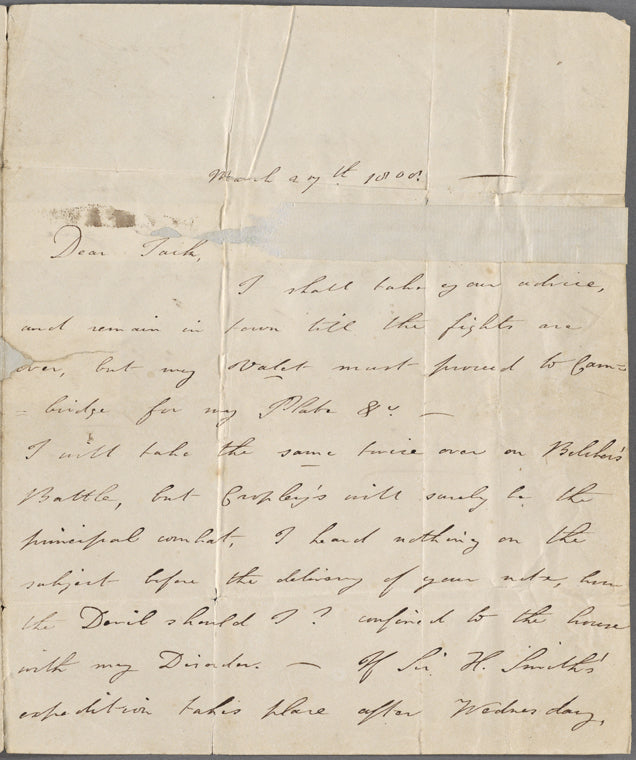 March 27th 1808.
Dear Jack,
I shall take your advice,
and remain in town till the fights are
over, but my Valet must proceed to Cam=
=bridge for my Plate &c. —
I will take the same twice over on Belcher's
Battle, but Cropley's will surely be the
principal combat, I heard nothing on the
subject before the delivery of your note, how
the Devil should I? confined to the house
with my Disorder. — If Sir H. Smith's
expedition takes place after Wednesday,